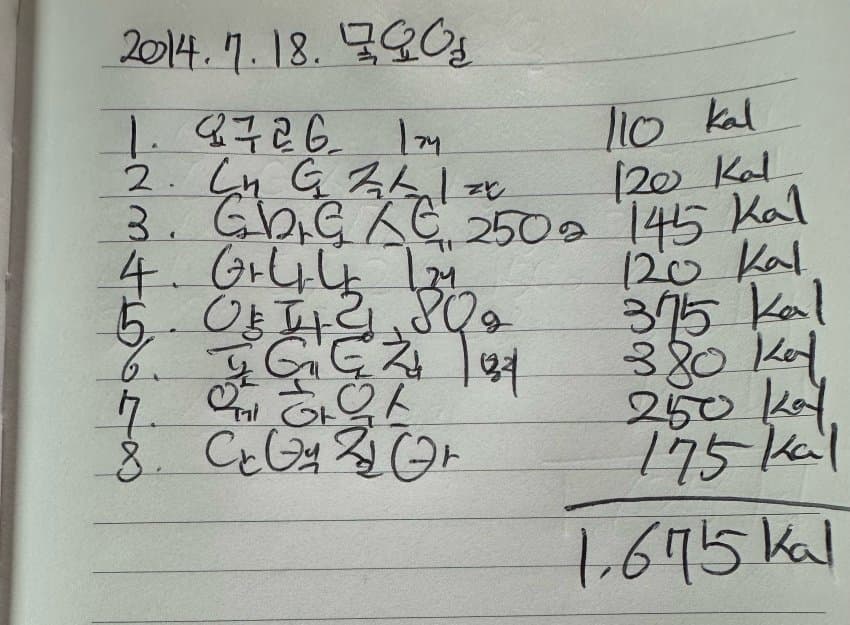 2014.7.18. 목요일
1. 요구르트 1개 110 Kal
2. 포도 주스 1잔 120 Kal
3. 토마토 스튜 250g 145 Kal
4. 바나나 1개 120 Kal
5. 양파링 80g 375 Kal
6. 포테토칩 1봉지 380 Kal
7. 웨하스 250 Kal
8. 단백질바 175 Kal
1,675 Kal